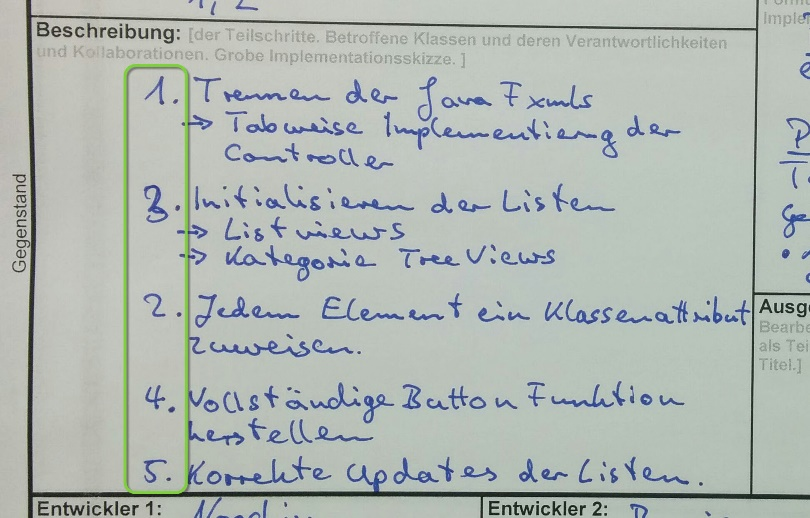 1, 2
Beschreibung: [der Teilschritte. Betroffene Klassen und deren Verantwortlichkeiten
und Kollaborationen. Grobe Implementationsskizze. ]
1. Trennen der Java Fxmls
→ Tabweise Implementierung der
Controller
3. Initialisieren der Listen
→ Listviews
→ Kategorie TreeViews
2. Jedem Element ein Klassenattribut
zuweisen.
4. Vollständige Button Funktion
herstellen
5. Korrekte Updates der Listen.
Gegenstand
Entwickler 1:
Entwickler 2:
Imple
Ausg
Bearbe
als Tei
Titel.]